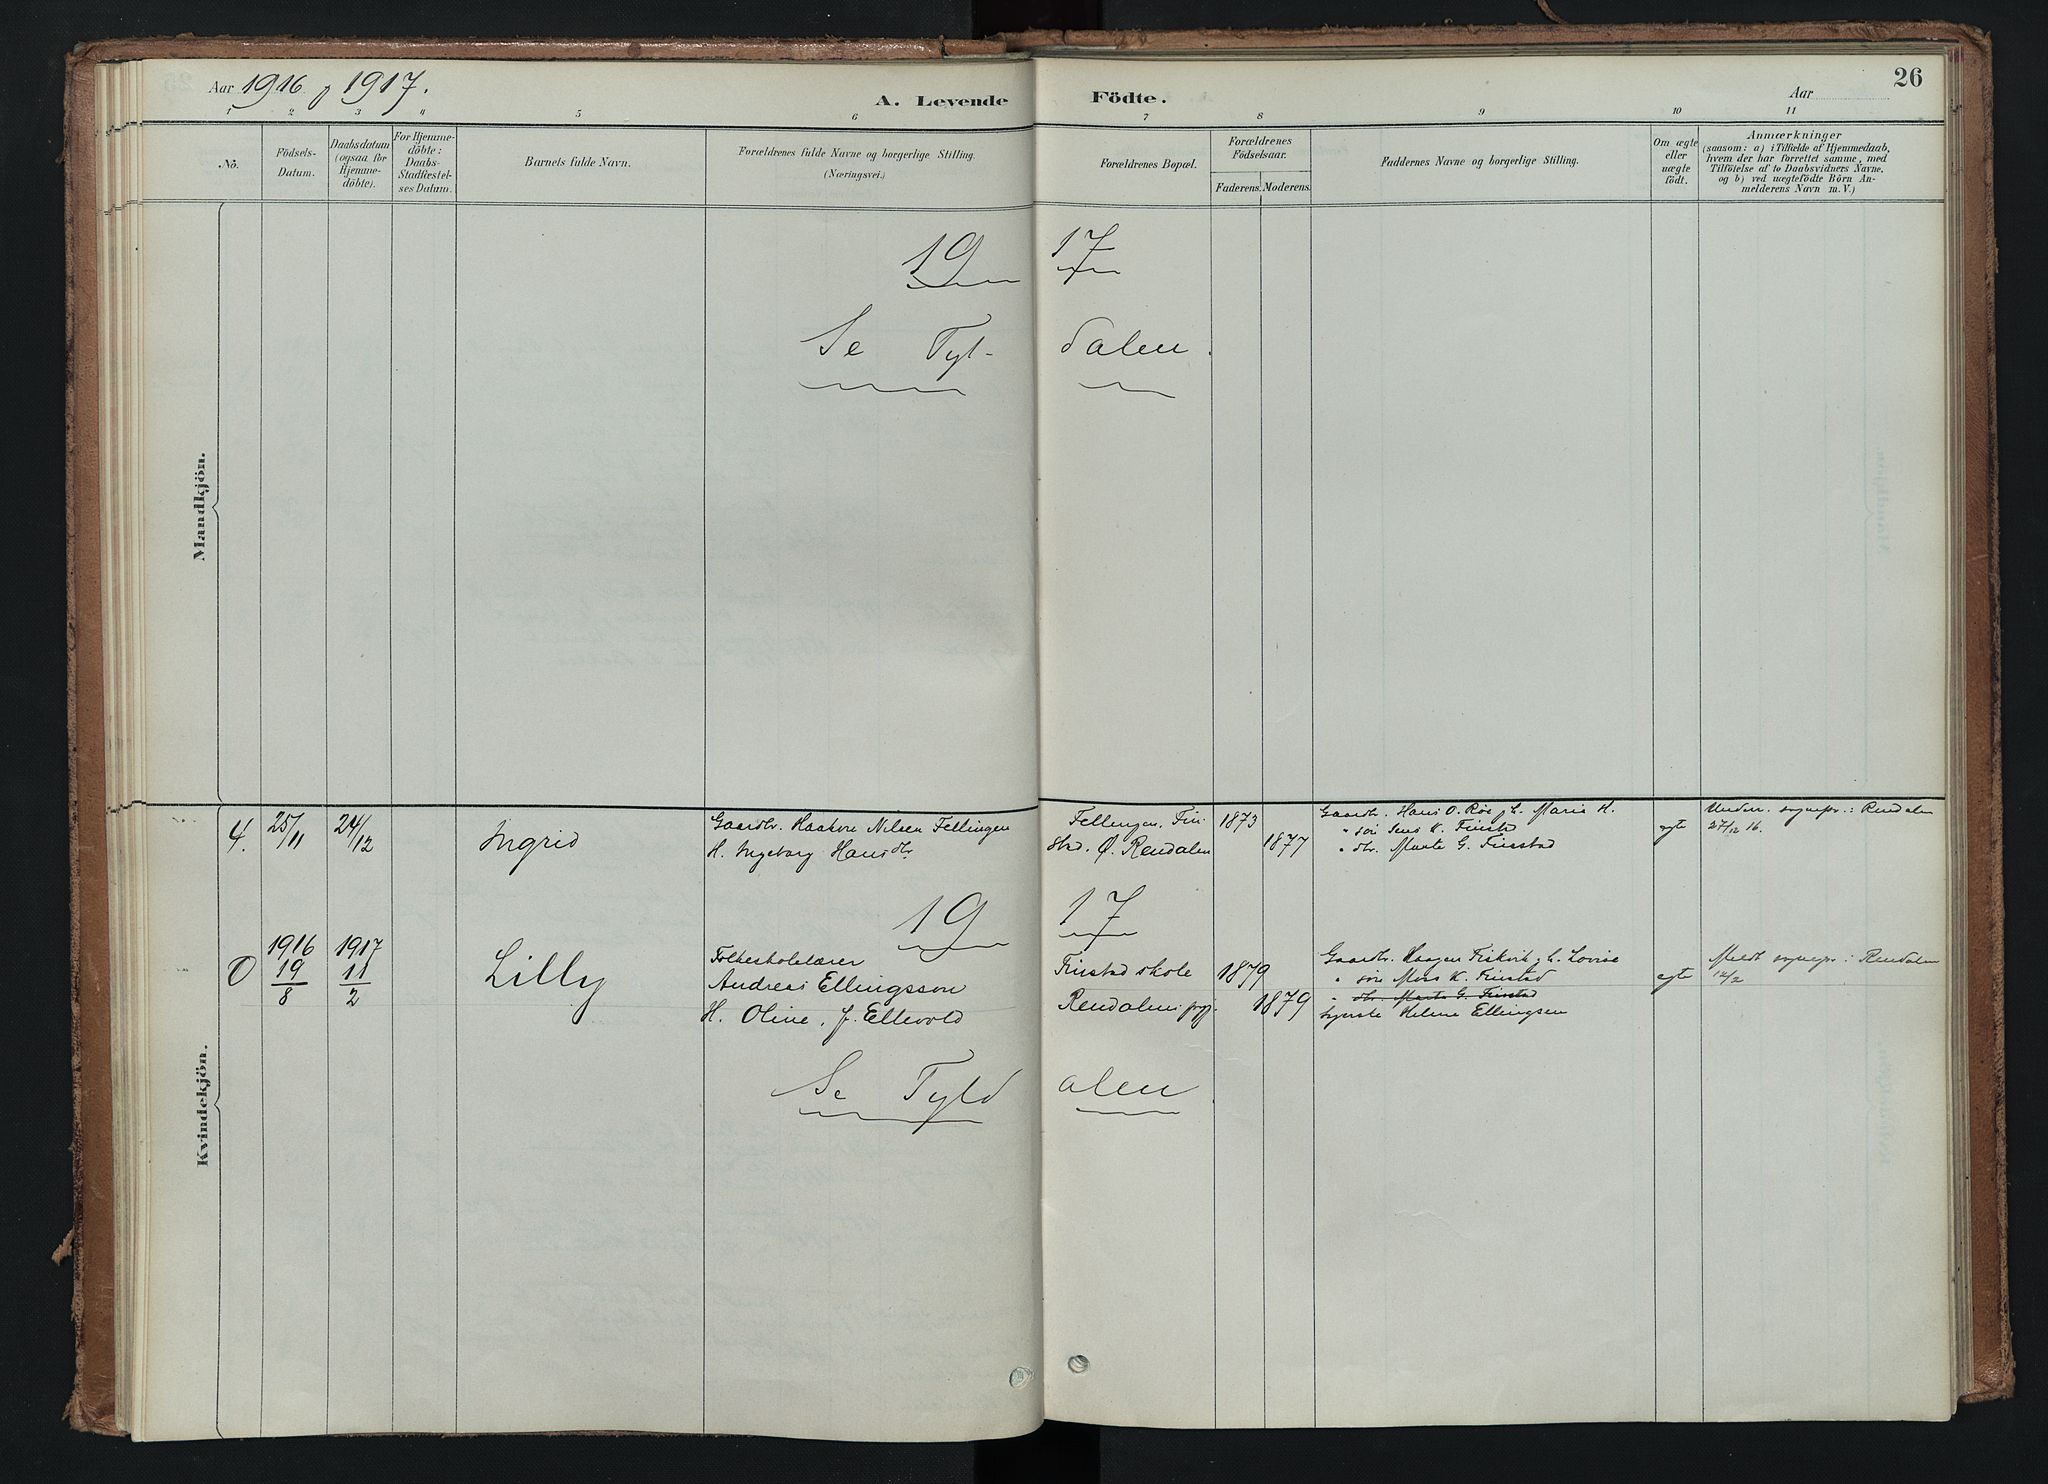 Aar 1916 & 1917.
A. Levende Födte.
Aar
26
1 2 3 4 5 6 7 8 9 10 11
No.
Födsels-
Datum.
Daabsdatum
(ogsaa for
Hjemme-
döbte).
For Hjemme-
döbte:
Daabs-
Stadfæstel-
ses Datum.
Barnets fulde Navn.
Forældrenes fulde Navne og borgerlige Stilling.
(Næringsvei.)
Forældrenes Bopæl.
Forældrenes
Födselsaar.
Faderens. Moderens.
Faddernes Navne og borgerlige Stilling.
Om ægte
eller
uægte
födt.
Anmærkninger
(saasom: a) i Tilfælde af Hjemmedaab,
hvem der har forrettet samme, med
Tilföielse af to Daabsvidners Navne,
og b) ved uægtefödte Börn An-
melderens Navn m. V.)
Mandkjön.
19 17
Se Tyl- dalen.
Kvindekjön.
4.
25/11
24/12
Ingrid
Gaardbr. Haakon Nilsen Fellingen
H. Ingeborg Hansdtr.
Fellingen, Fin-
stad. Ø. Rendalen
1873
1877
Gaardbr. Hans O. Røe, h. Marie H.
" søn Jens K. Finstad
" dtr. Marte G. Finstad
egte
Underr. sognepr. i Rendalen
27/12 16.
19 17
0
1916
19/8
1917
11/2
Lilly
Folkeskolelærer
Andreas Ellingsson
H. Oline, f. Ellevold
Finstad skole
Rendalens prgj.
1879
1879
Gaardbr. Haagen Fiskvik, h. Lovise
" søn Mons K. Finstad
" dtr. Marte G. Finstad
syerske Helene Ellingsen
egte
Meldt sognepr. i Rendalen
12/2
Se Tyld alen